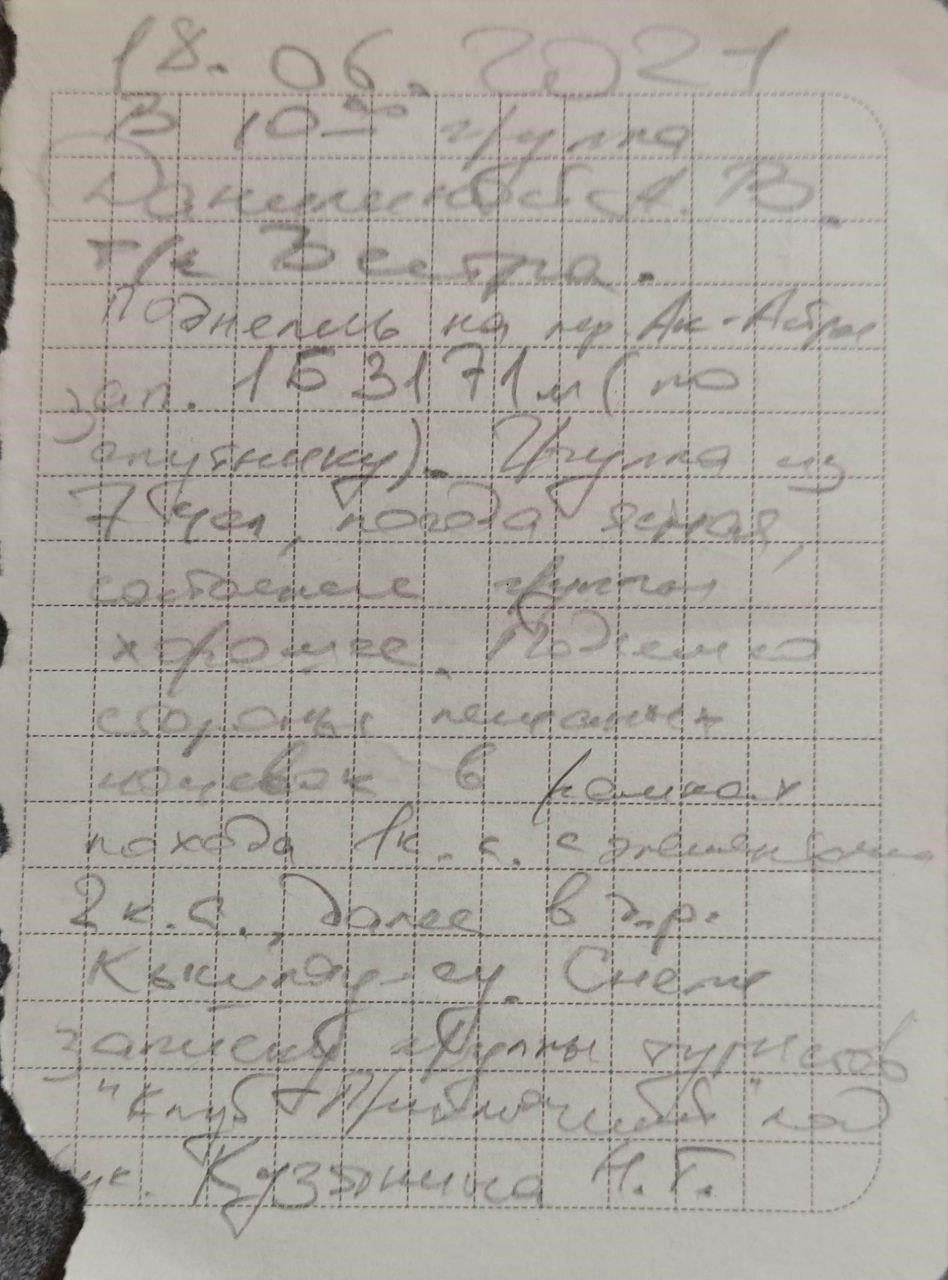 18.06.2021
В 10 00 группа
А. В.
т/к Вестра.
Поднялись на пер. Ак-
зап. 1Б 3171 м (по
спутнику). Группа из
7 чел, погода ясная,
состояние группы
хорошее. Подъем со
стороны песчаных
ночевок в рамках
похода 1 к.с. с элементами
2 к.с., далее в д.р.
Сняли
записку группы туристов
"Клуб Приключений" под
рук. Кузьмина Н.Г.